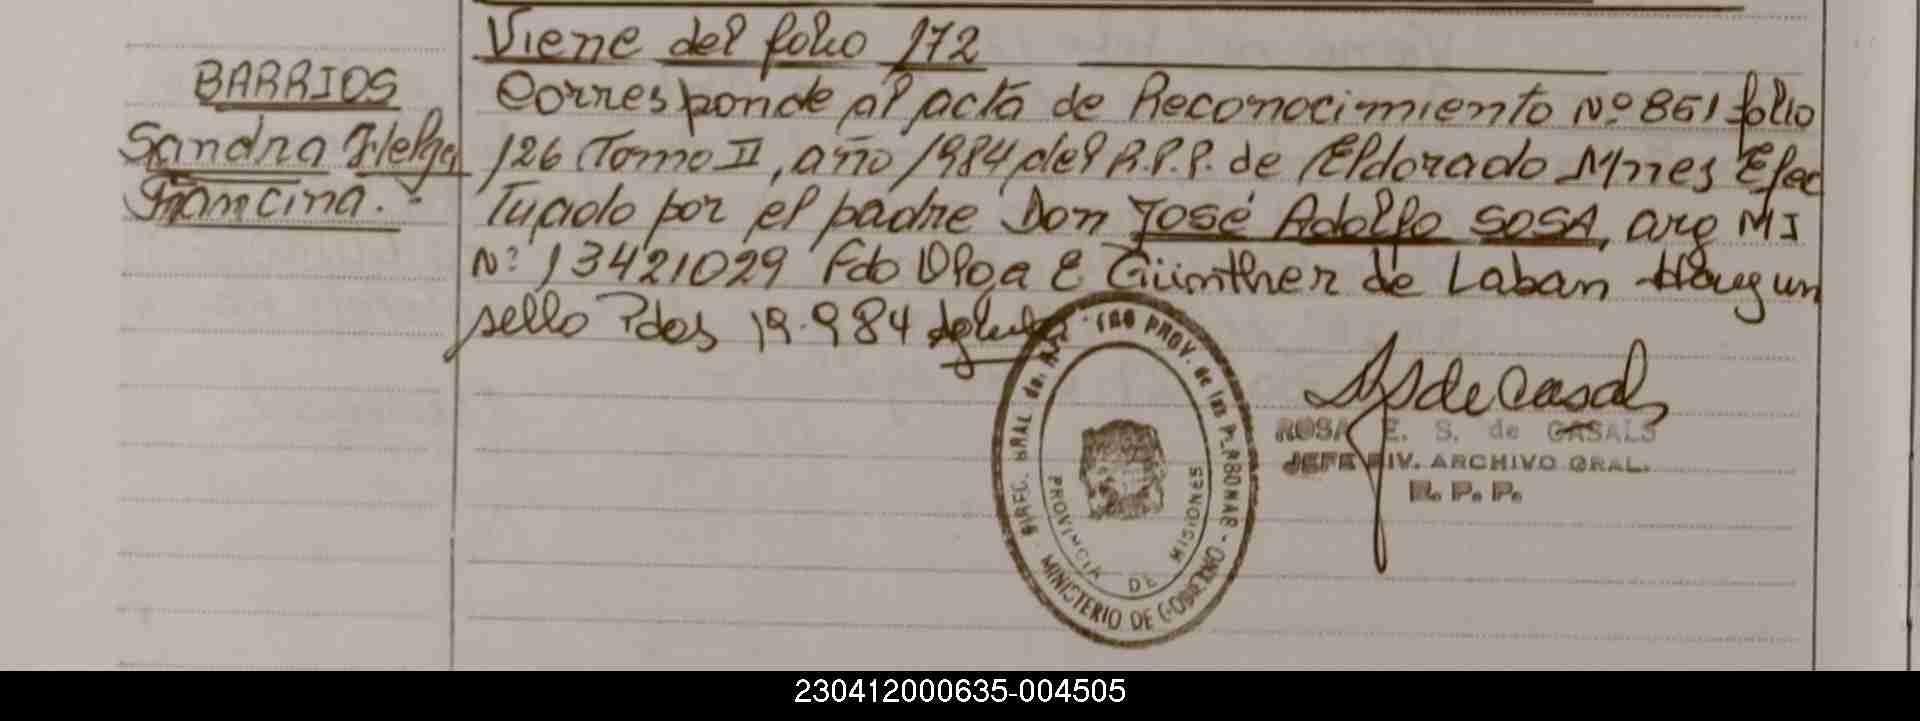 Viene del folio 172
BARRIOS
Sandra Helga
Francina.-
Corresponde al acta de Reconocimiento Nº 861 folio
126 Tomo II, año 1984 del R.P.P. de Eldorado Mnes Efec
Tuado por el padre Don José Adolfo SOSA, arg MI
Nº 13421029 Fdo Olga E Günther de Laban Hay un
sello Pdas 19.984
ROSA E. S. de CASALS
JEFE DIV. ARCHIVO GRAL.
R. P. P.
DIREC. GRAL del REGISTRO PROV. de las PERSONAS
MINISTERIO DE GOBIERNO
PROVINCIA DE MISIONES
230412000635-004505